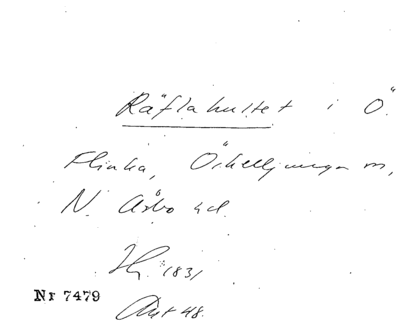 Räflahultet i Ö.
Flinka, Örkelljunga sn,
N. Åsbo hd.
Hj. 1831
Nr 7479
Avt 48.